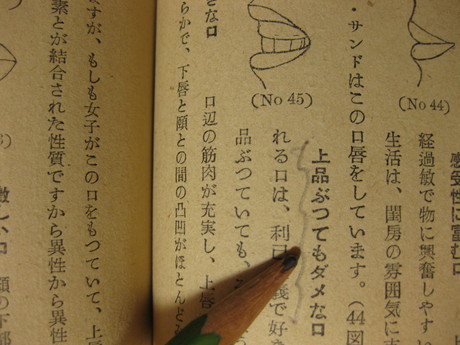 感受性に富む口
経過敏で物に興奮しやすい
生活は、閨房の雰囲気に
(No 44)
・サンドはこの口唇をしています。(44図
上品ぶつてもダメな口
(No 45)
れる口は、利己 義で好き
品ぶつていても、
さな口
口辺の筋肉が充実し、上唇
らかで、下唇と頤との間の凸凹がほとんど
ますが、もしも女子がこの口をもつていて、上
素とが結合された性質ですから異性から異性
激しい口 頤の下部